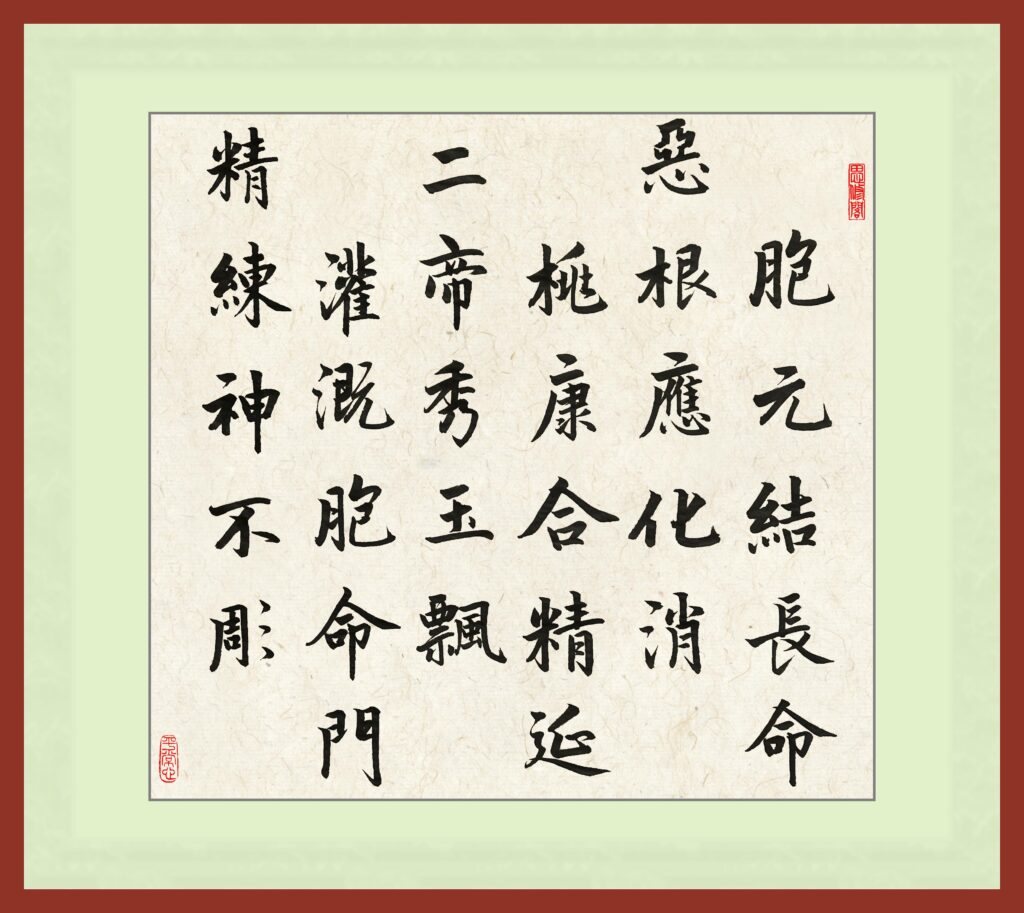 思修閣
胞元結長命
惡根應化消
桃康合精延
二帝秀玉飄
灌溉胞命門
精練神不彫
平常心